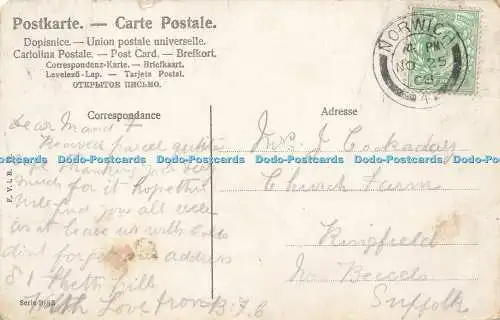 Postkarte. — Carte Postale.
Dopisnice. — Union postale universelle.
Cartolina Postale. — Post Card. — Brefkort.
Correspondenz-Karte. — Briefkaart.
Levelező-Lap. — Tarjeta Postal.
ОТКРЫТОЕ ПИСЬМО.
NORWICH
PM
NO 25
Correspondance
Adresse
Dear Maud &
Received parcel quite
safe thanking you very
much for it hope this
will find you all well
as it leave us with colds
dont forget our address
81
With Love from B.F.C
Mrs J Cockaday
Church Farm
Ringfield
Nr Beccles
Suffolk
Dodo-Postcards Dodo-Postcards Dodo-Postcards Dodo-Postcards Dodo-Postcards Dodo-Postcards
F. V. i. B.
Serie